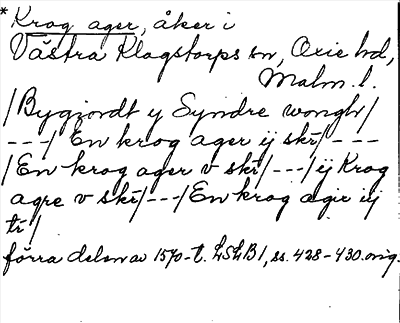 * Krog ager, åker i
Västra Klagstorps sn, Oxie hd,
Malm. l.
/Bygiordt y Syndre wongh/
---/ En krog ager ij skr/ ---
/En krog ager v skr/---/ij Krog
agre v skr/---/En krog agir iij
tr/
förra delen av 1570-t. LSLB1, ss. 428-430. orig.